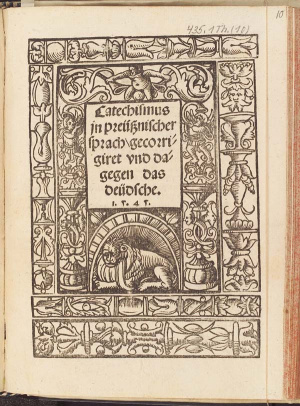 10
435.1Th.(10)
Catechismus
jn preüßnischer
sprach, gecorri-
giret vnd da-
gegen das
deüdsche.
1.5.4.5.